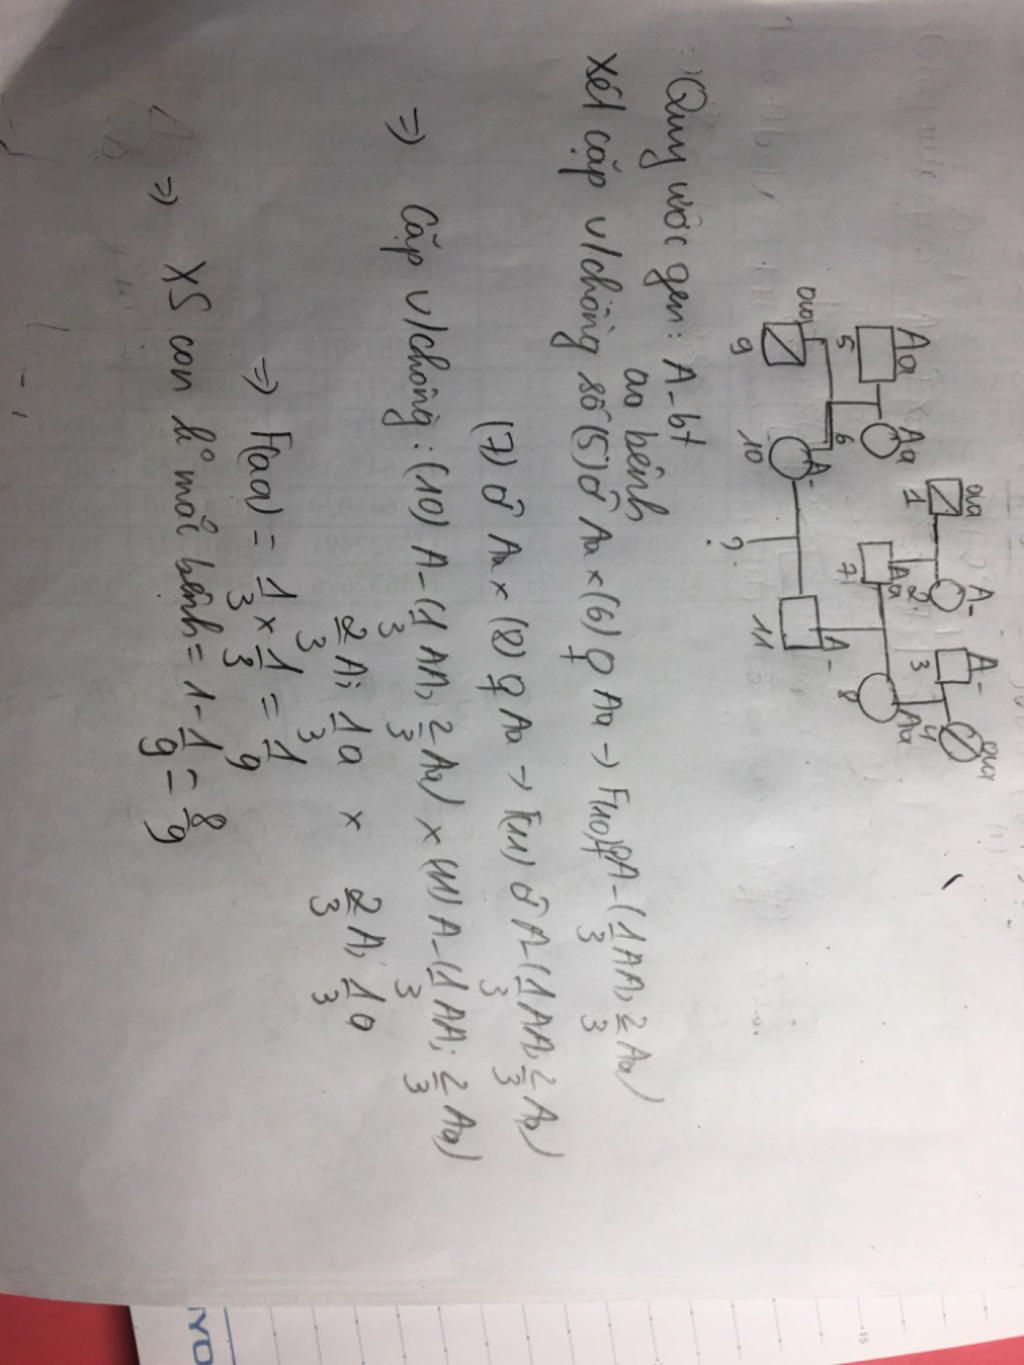 aa A- A- aa
1 2 3 4
Aa Aa Aa Aa
5 6 7 8
aa A- A-
9 10 ? 11
Quy ước gen: A - bt
aa bệnh
Xét cặp v/chồng số (5) ♂ Aa × (6) ♀ Aa → F(10) ♀ A- (1/3 AA, 2/3 Aa)
(7) ♂ Aa × (8) ♀ Aa → F(11) ♂ A- (1/3 AA, 2/3 Aa)
⇒ Cặp v/chồng: (10) A- (1/3 AA, 2/3 Aa) × (11) A- (1/3 AA; 2/3 Aa)
2/3 A; 1/3 a × 2/3 A; 1/3 a
⇒ F(aa) = 1/3 × 1/3 = 1/9
⇒ XS con k mắc bệnh = 1 - 1/9 = 8/9
15